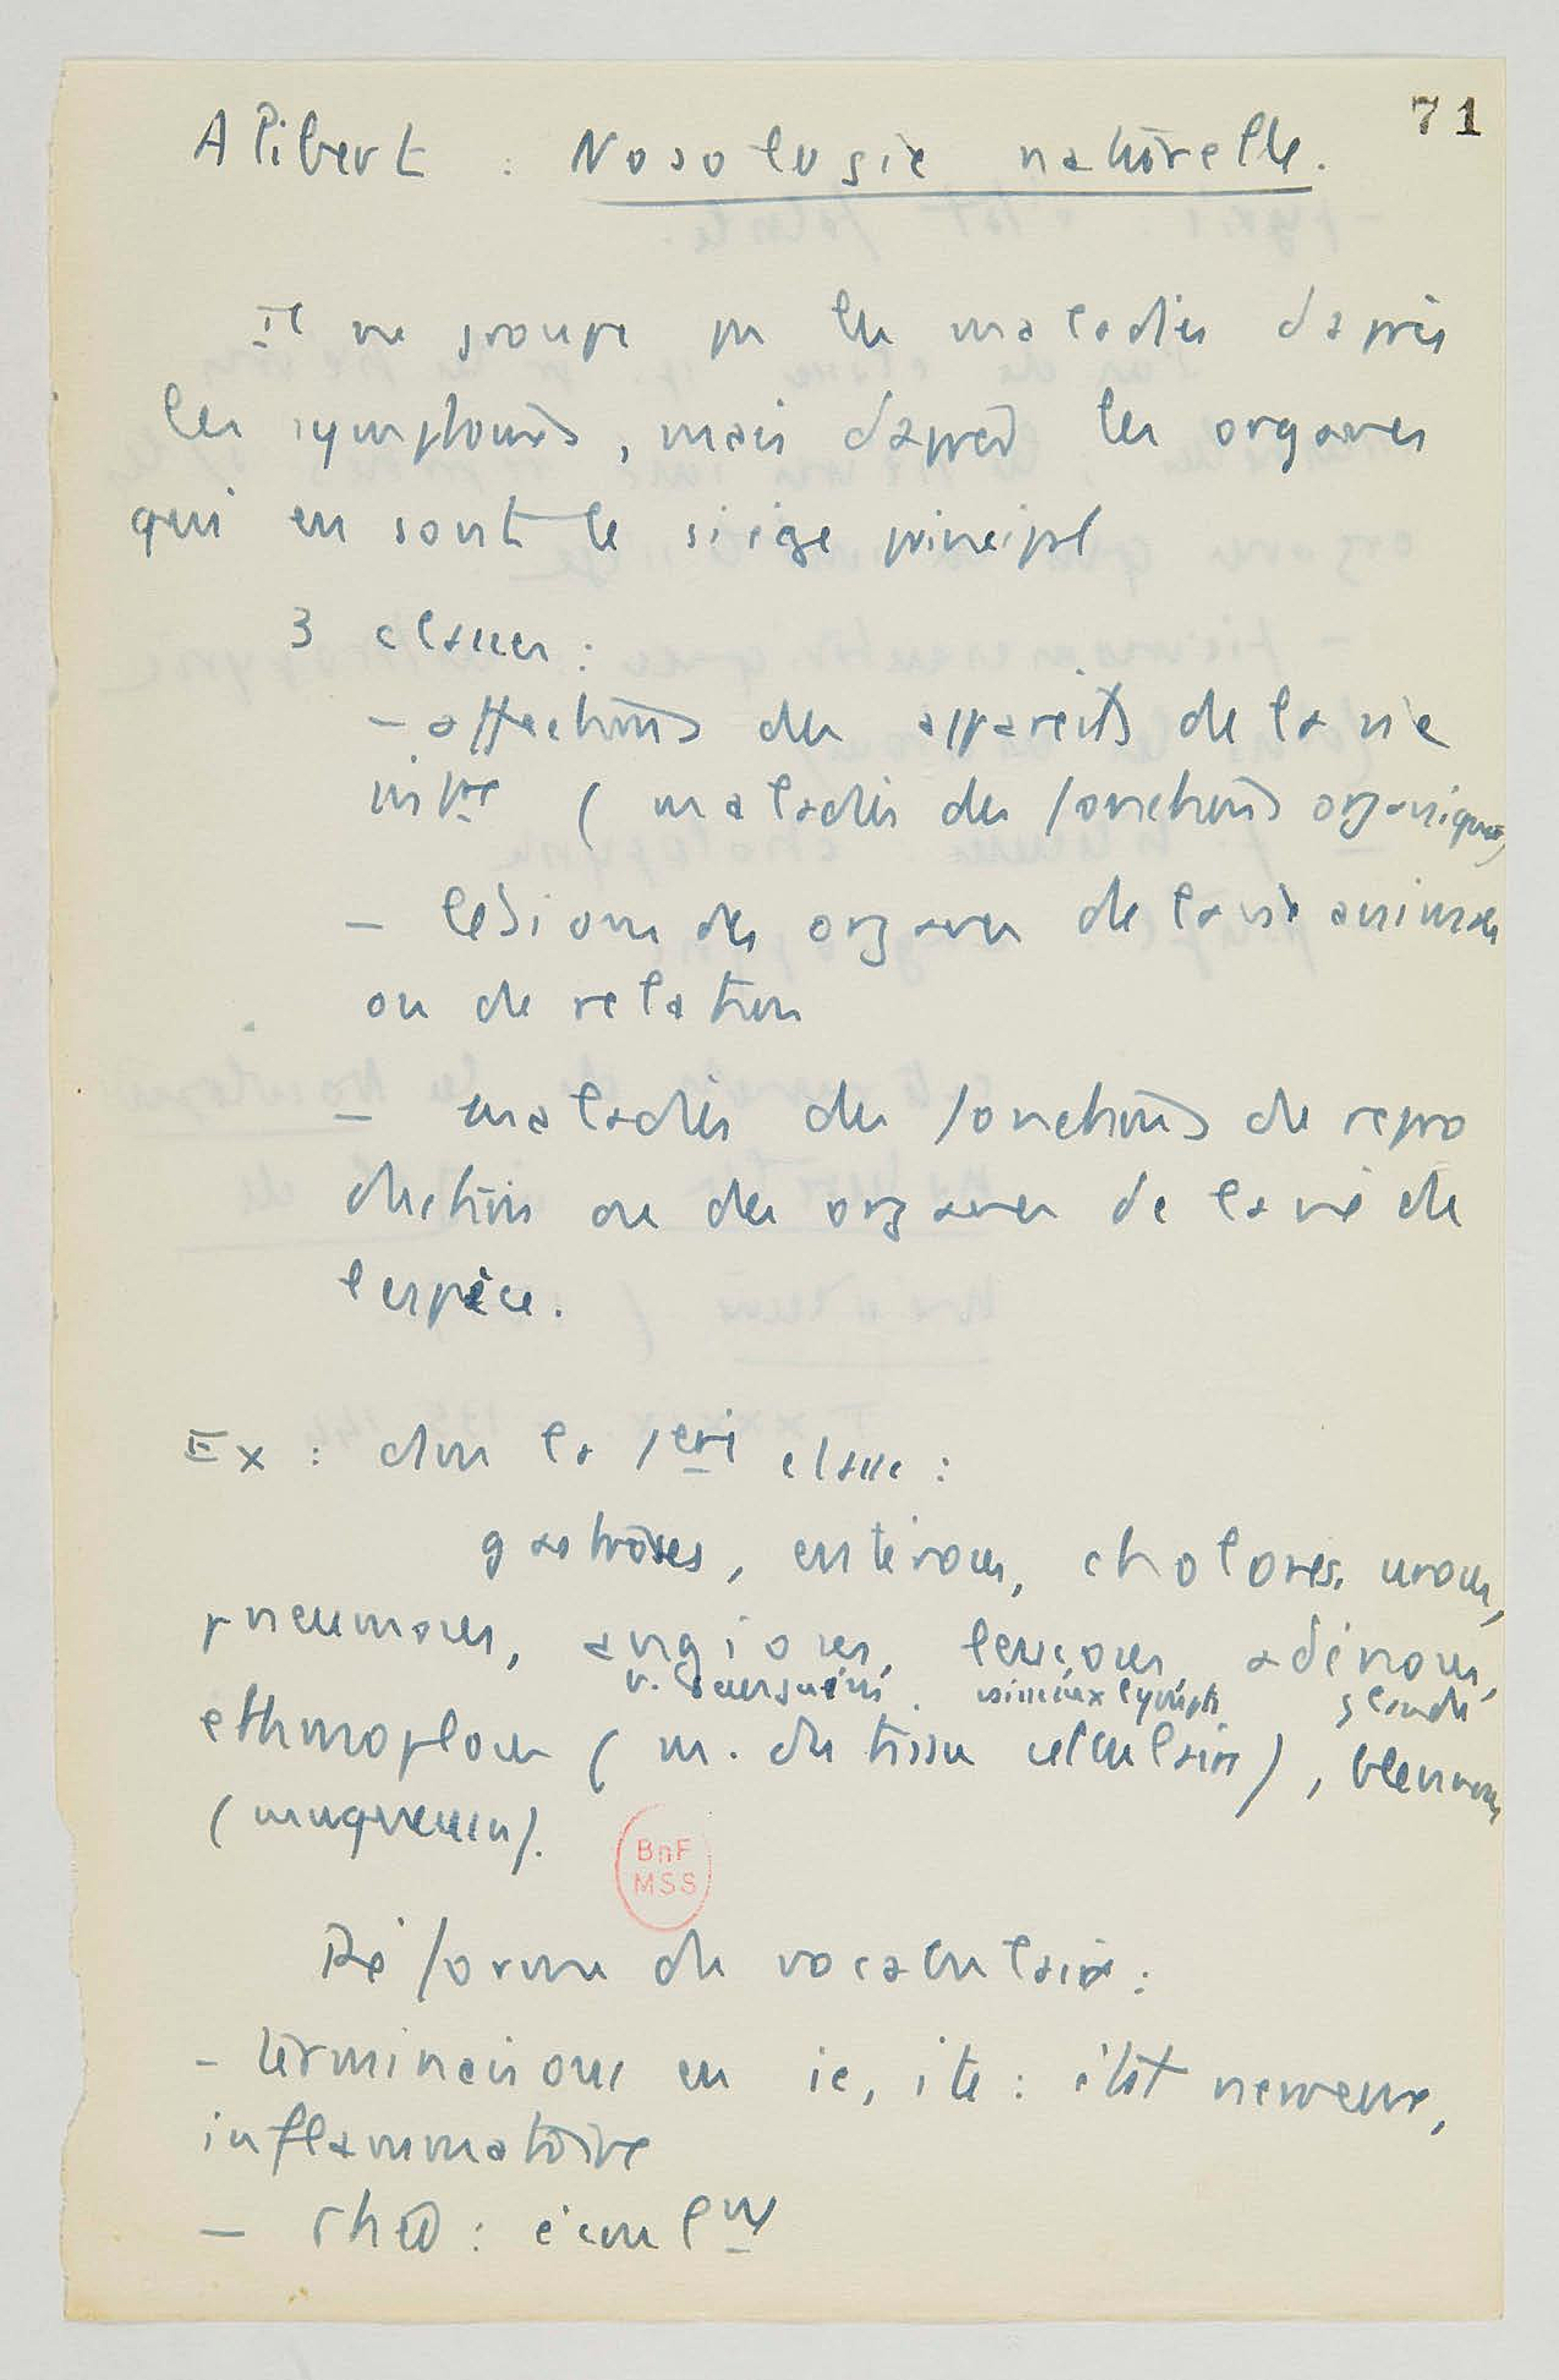 71
Alibert : Nosologie naturelle.
Il ne groupe pas les maladies d'après
les symptomes, mais d'après les organes
qui en sont le siège principal
3 classes :
- affections des appareils de la vie
( maladies des fonctions organiques)
- lesions des organes de la vie animale
ou de relation
- maladies des fonctions de repro
duction ou des organes de la vie de
l'espèce.
Ex : dans la 1ere classe :
gastroses, entéroses, choloses, uroses,
pneumoses, angioses, leucoses, adénoses,
v. sanguins. vaisseaux lymph glandes
ethmoploses ( m. du tissu cellulaire), blennoses
(muqueuses).
BnF
MSS
Réforme du vocabulaire :
- terminaisons en ie, ite : état nerveux,
inflammatoire
- rhée : écoulmt